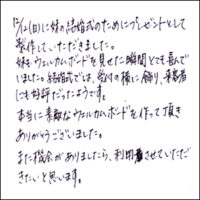 12/12(日)に妹の結婚式のためにプレゼントとして
製作していただきました。
妹もウェルカムボードを見せた瞬間とても喜んで
いました。結婚式では、受付の横に飾り、来客者
にも好評だったようです。
本当に素敵なウェルカムボードを作って頂き
ありがとうございました。
また機会がありましたら、利用させていただ
きたいと思います。